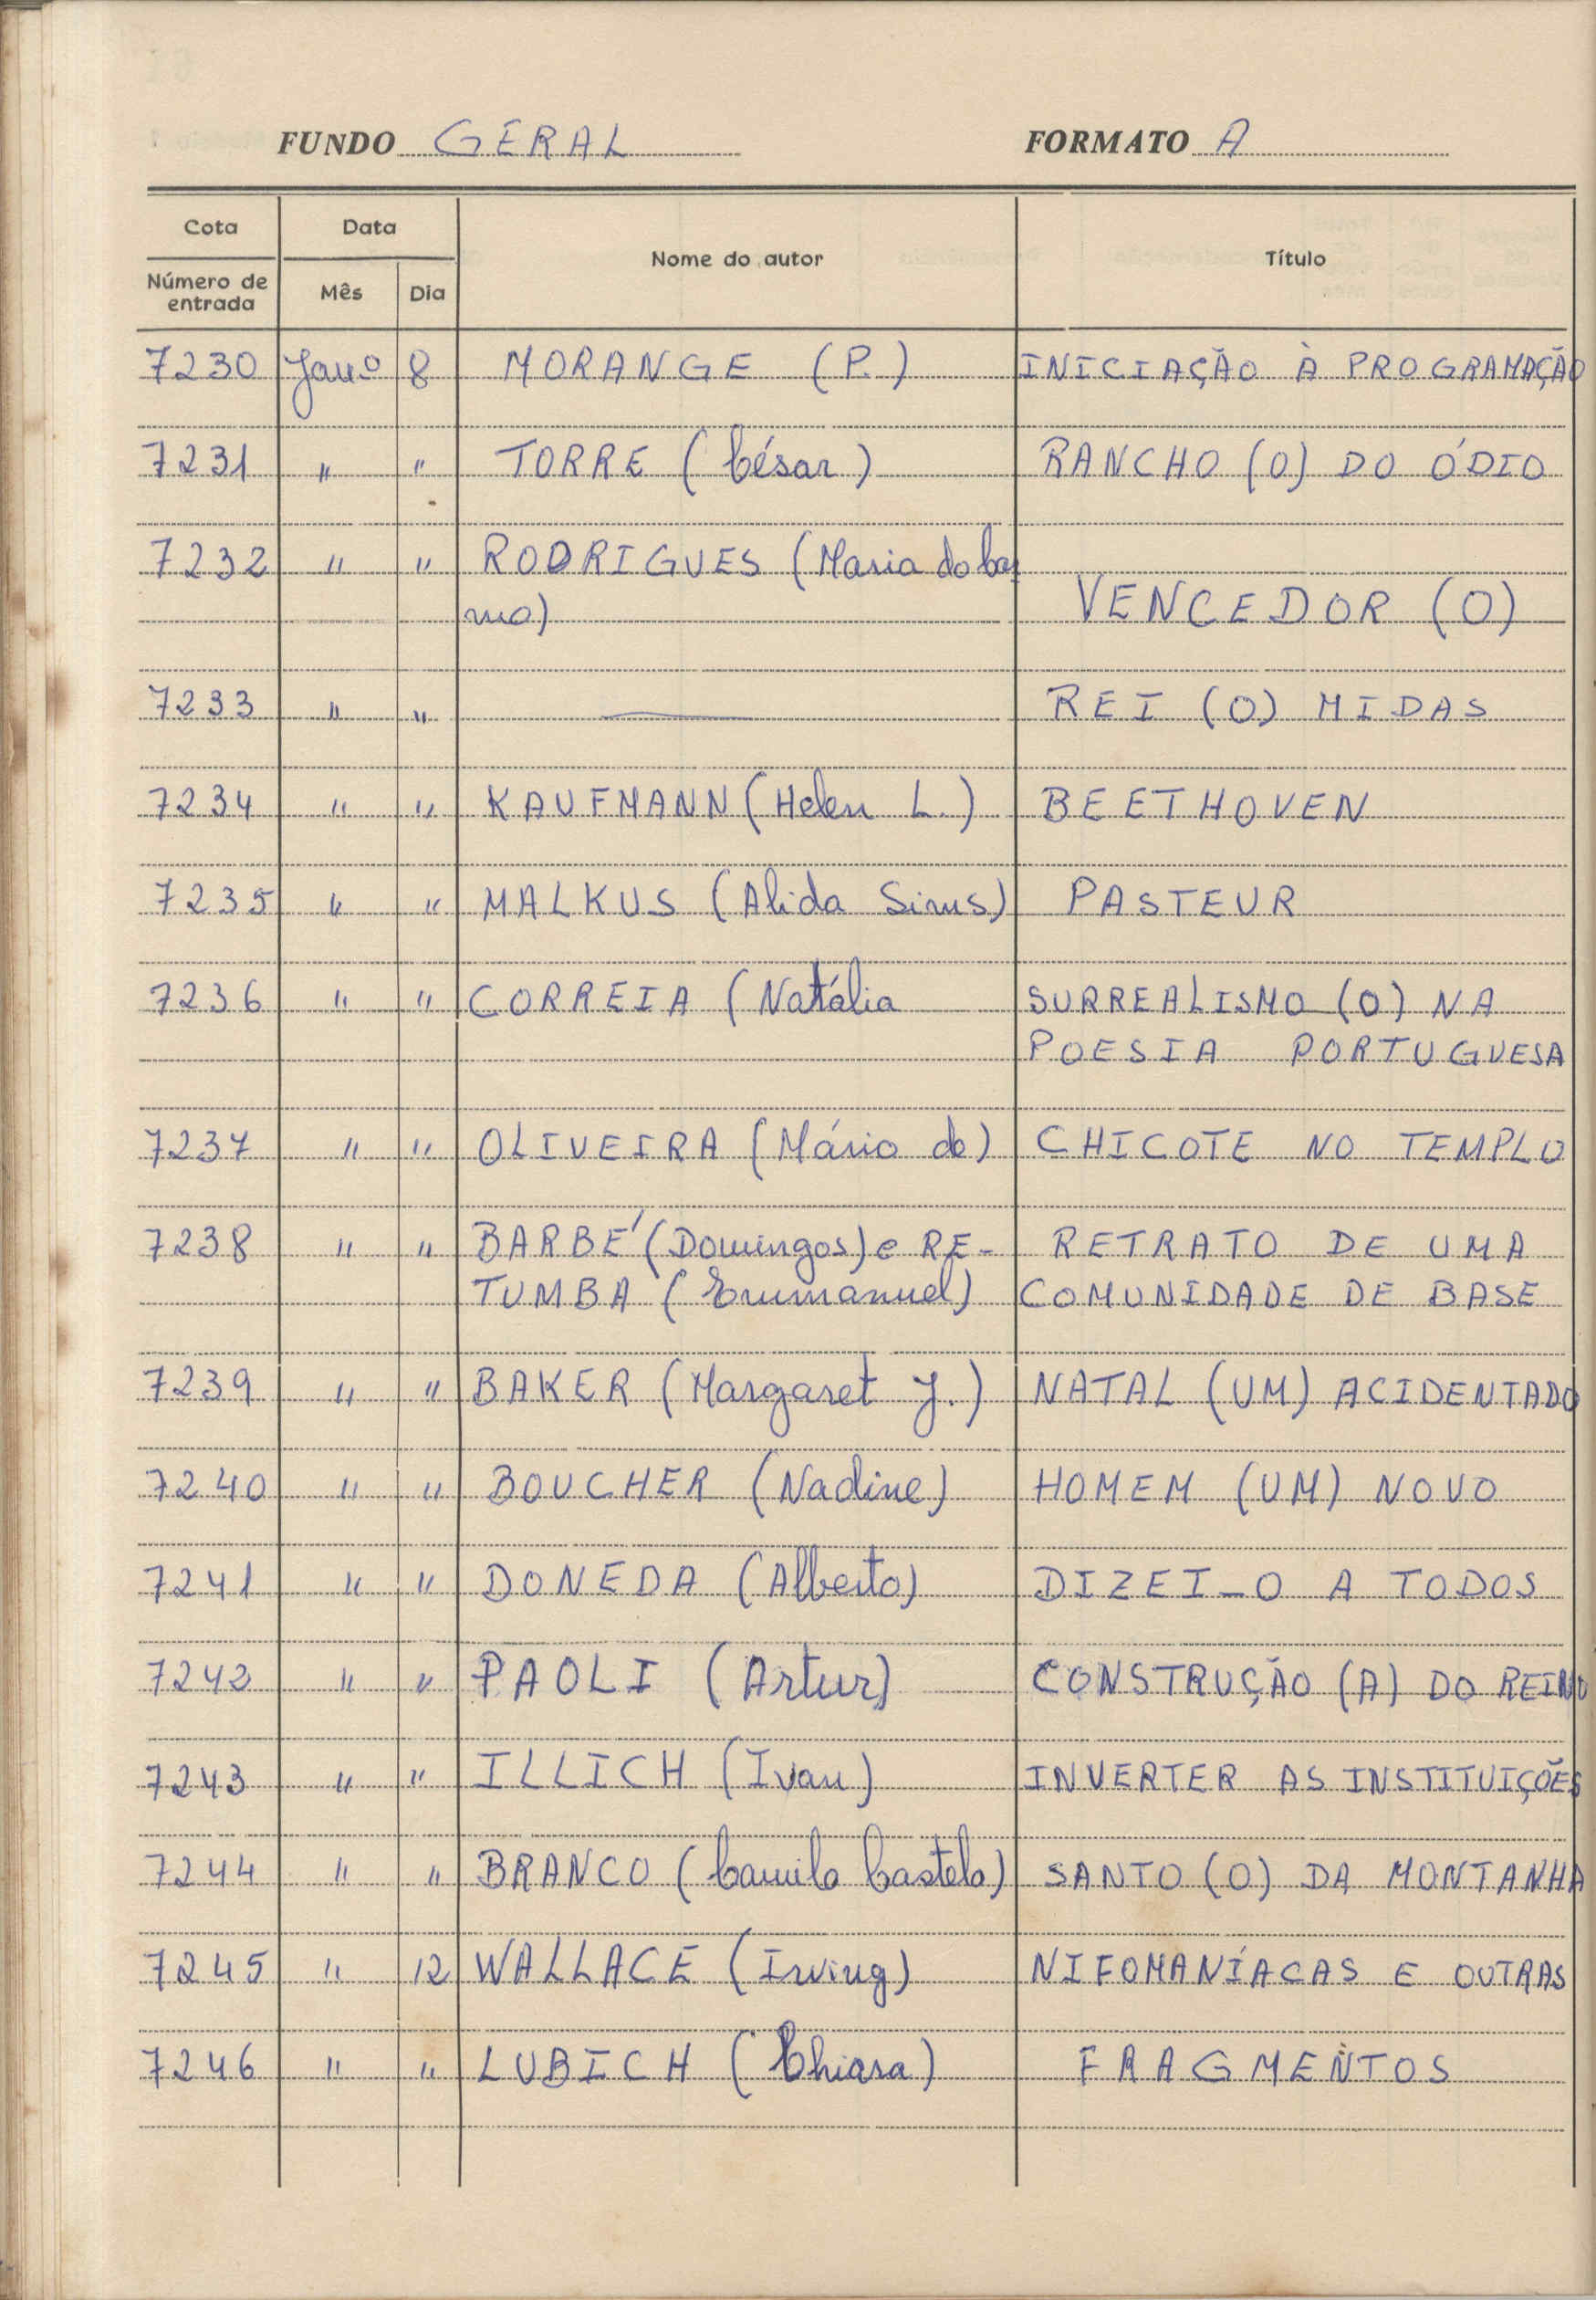 FUNDO GERAL FORMATO A
Cota Data Nome do autor Título
Número de entrada Mês Dia
7230 Janº 8 MORANGE (P.) INICIAÇÃO À PROGRAMAÇÃO
7231 " " TORRE (César) RANCHO (O) DO ÓDIO
7232 " " RODRIGUES (Maria do Car
mo) VENCEDOR (O)
7233 " " — REI (O) MIDAS
7234 " " KAUFMANN (Helen L.) BEETHOVEN
7235 " " MALKUS (Alida Sims) PASTEUR
7236 " " CORREIA (Natália SURREALISMO (O) NA
POESIA PORTUGUESA
7237 " " OLIVEIRA (Mário de) CHICOTE NO TEMPLO
7238 " " BARBÉ (Domingos) e RE- RETRATO DE UMA
TUMBA (Emmanuel) COMUNIDADE DE BASE
7239 " " BAKER (Margaret J.) NATAL (UM) ACIDENTADO
7240 " " BOUCHER (Nadine) HOMEM (UM) NOVO
7241 " " DONEDA (Alberto) DIZEI-O A TODOS
7242 " " PAOLI (Artur) CONSTRUÇÃO (A) DO REINO
7243 " " ILLICH (Ivan) INVERTER AS INSTITUIÇÕES
7244 " " BRANCO (Camilo Castelo) SANTO (O) DA MONTANHA
7245 " 12 WALLACE (Irving) NIFOMANÍACAS E OUTRAS
7246 " " LUBICH (Chiara) FRAGMENTOS